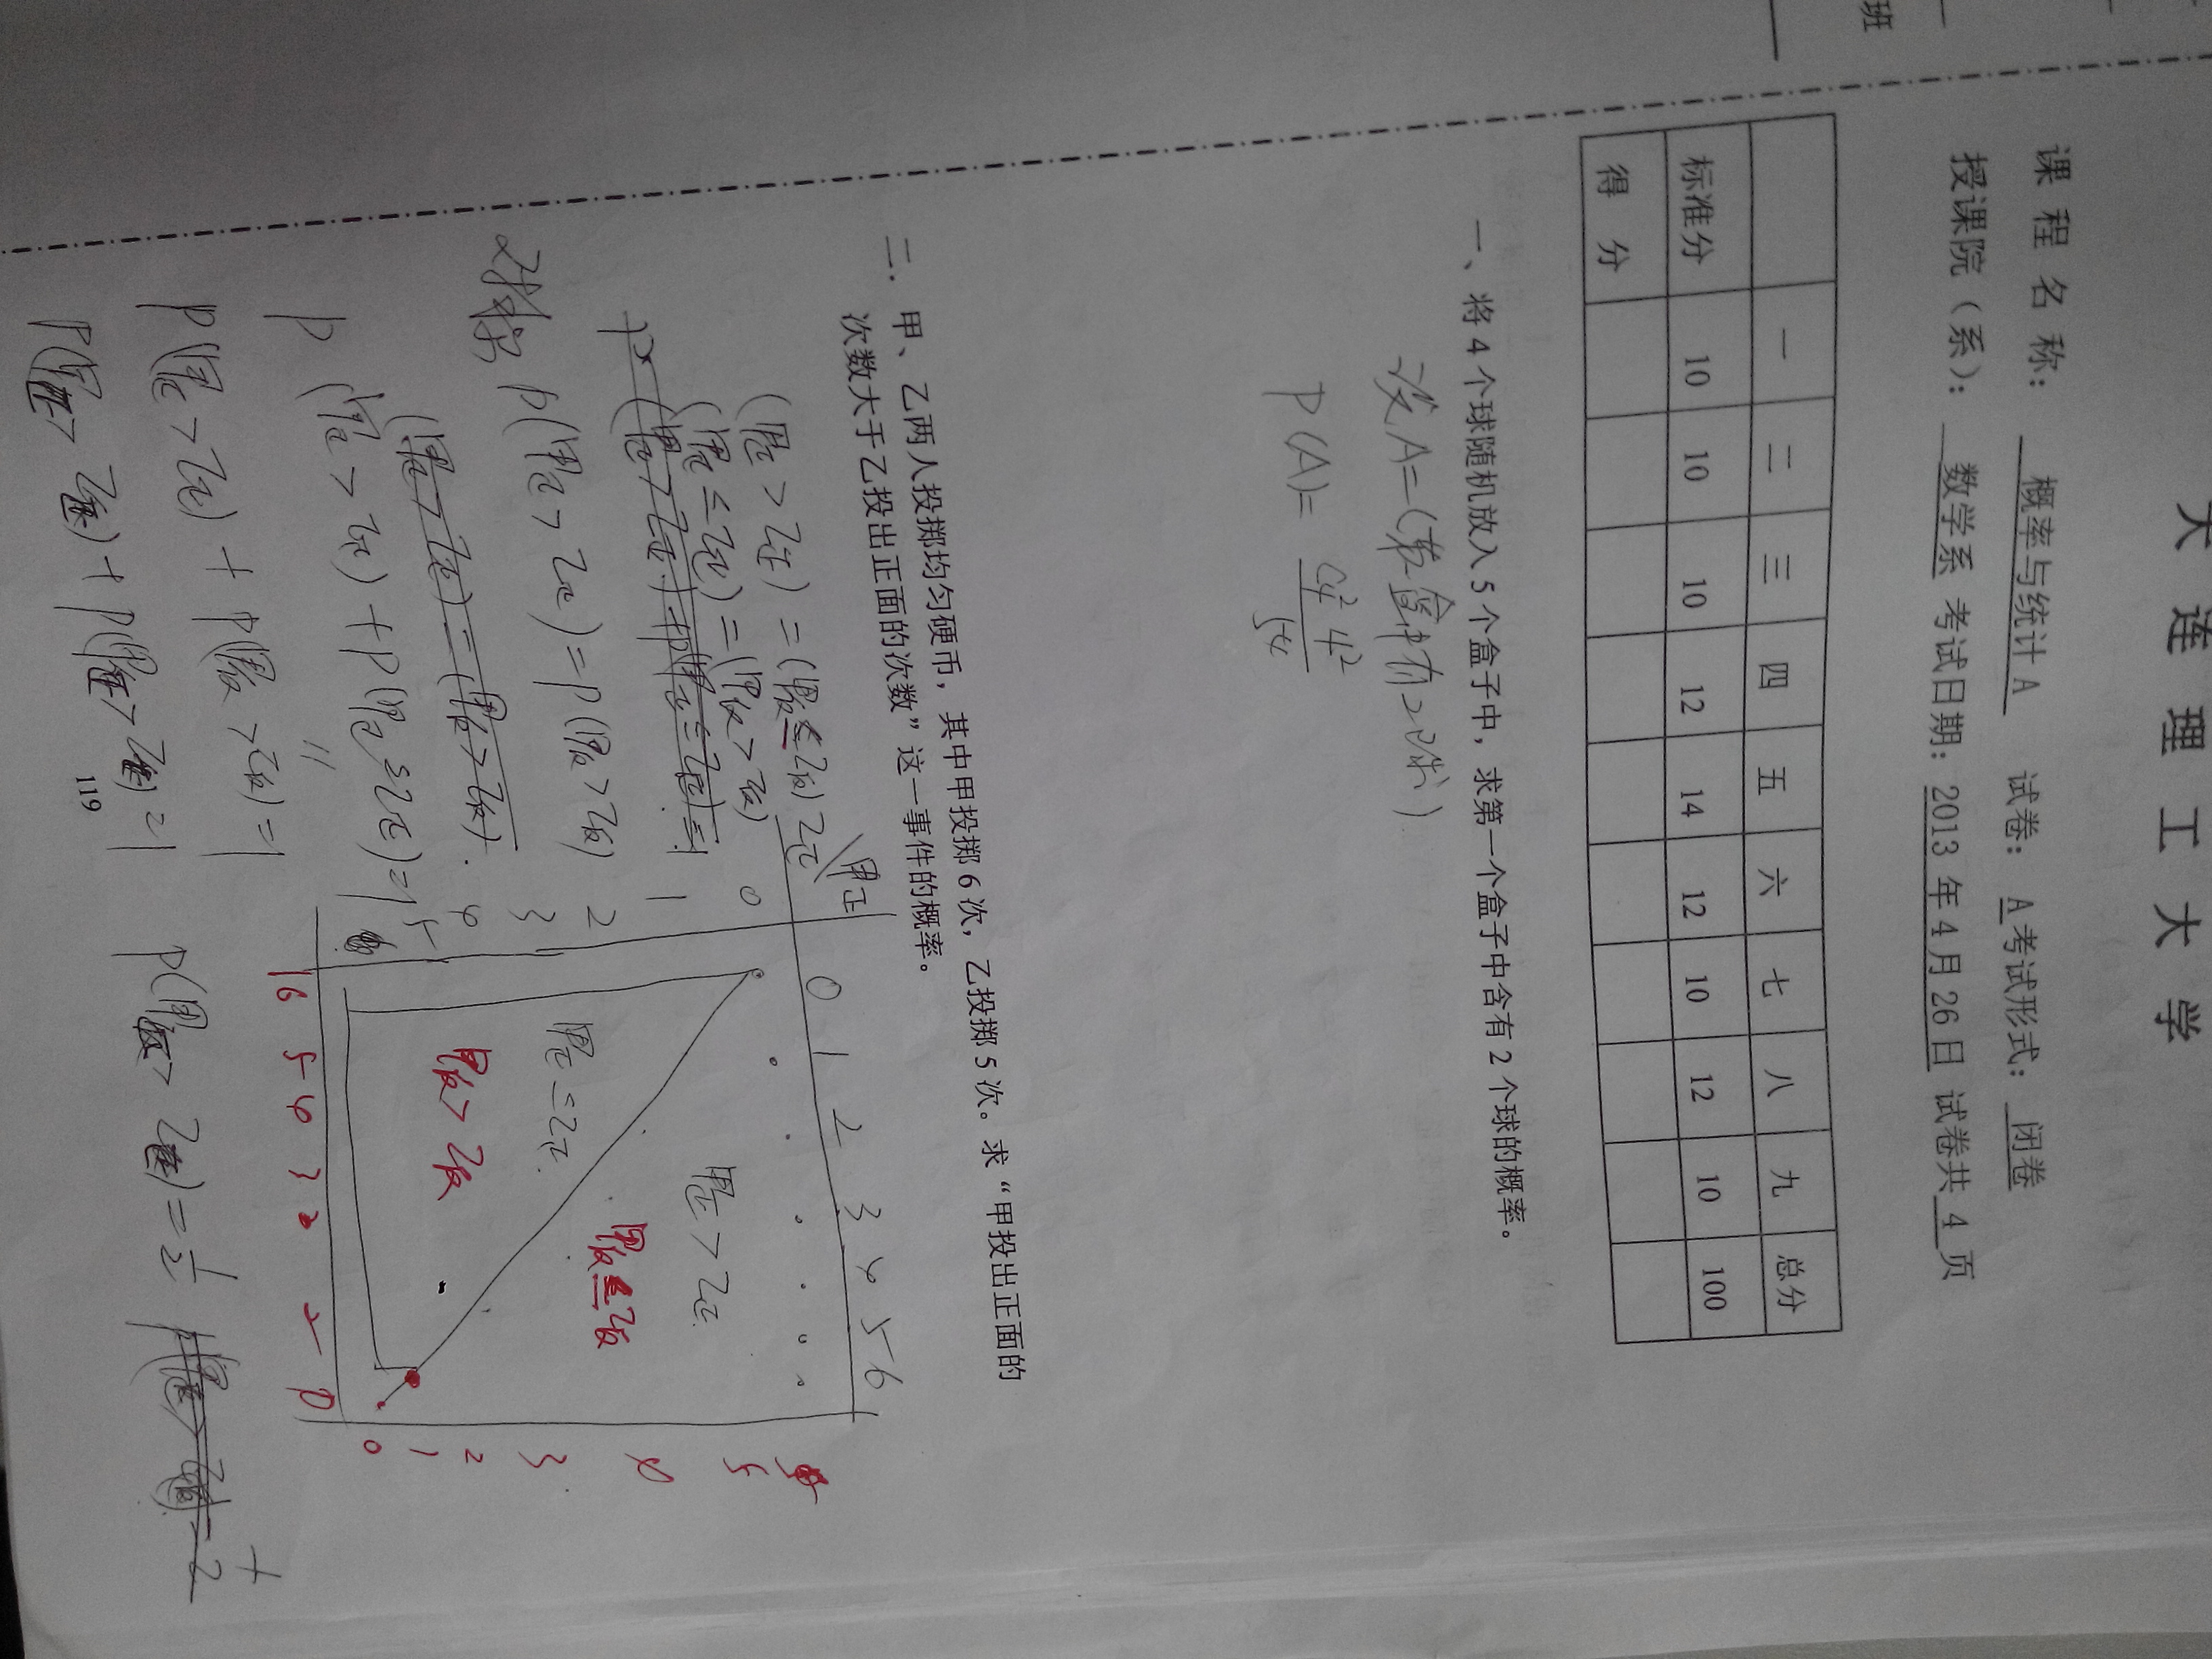 大 连 理 工 大 学
课 程 名 称: 概率与统计 A 试卷: A 考试形式: 闭卷
授课院 (系): 数学系 考试日期: 2013 年 4 月 26 日 试卷共 4 页
班
一 二 三 四 五 六 七 八 九 总分
标准分 10 10 10 12 14 12 10 12 10 100
得 分
一、将 4 个球随机放入 5 个盒子中, 求第一个盒子中含有 2 个球的概率。
设 A=(第一盒中有2球)
P(A)= C₄² 4² / 5⁴
二. 甲、乙两人投掷均匀硬币, 其中甲投掷 6 次, 乙投掷 5 次。求 “甲投出正面的
次数大于乙投出正面的次数” 这一事件的概率。
(甲正 > 乙正) = (甲反 ≤ 乙反)
(甲正 ≤ 乙正) = (甲反 > 乙反)
对称 P(甲正 > 乙正) = P(甲反 > 乙反)
(甲正 > 乙正) = (甲反 > 乙反).
P (甲正 > 乙正) + P(甲正 ≤ 乙正) = 1
P(甲正 > 乙正) + P(甲反 > 乙反) = 1
P(甲正 > 乙正) + P(甲正 > 乙正) = 1
P(甲正 > 乙正) = 1/2
甲正
乙正
0 1 2 3 4 5 6
0
1
2
3
4
5
甲正 > 乙正
甲反 ≤ 乙反
甲正 ≤ 乙正.
甲反 > 乙反
6 5 4 3 2 1 0
0 1 2 3 4 5
119